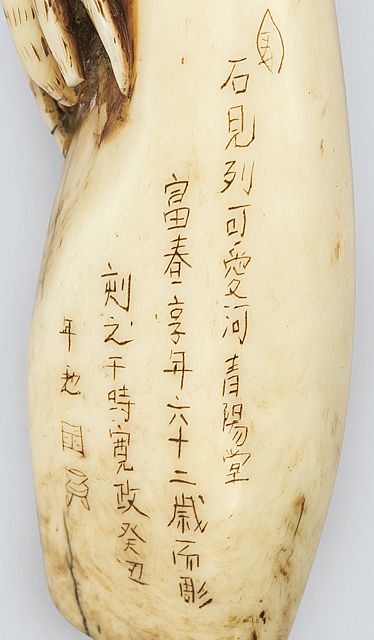 石見列可愛河青陽堂
富春享年六十二歳而彫
刻之于時寛政癸丑
年也